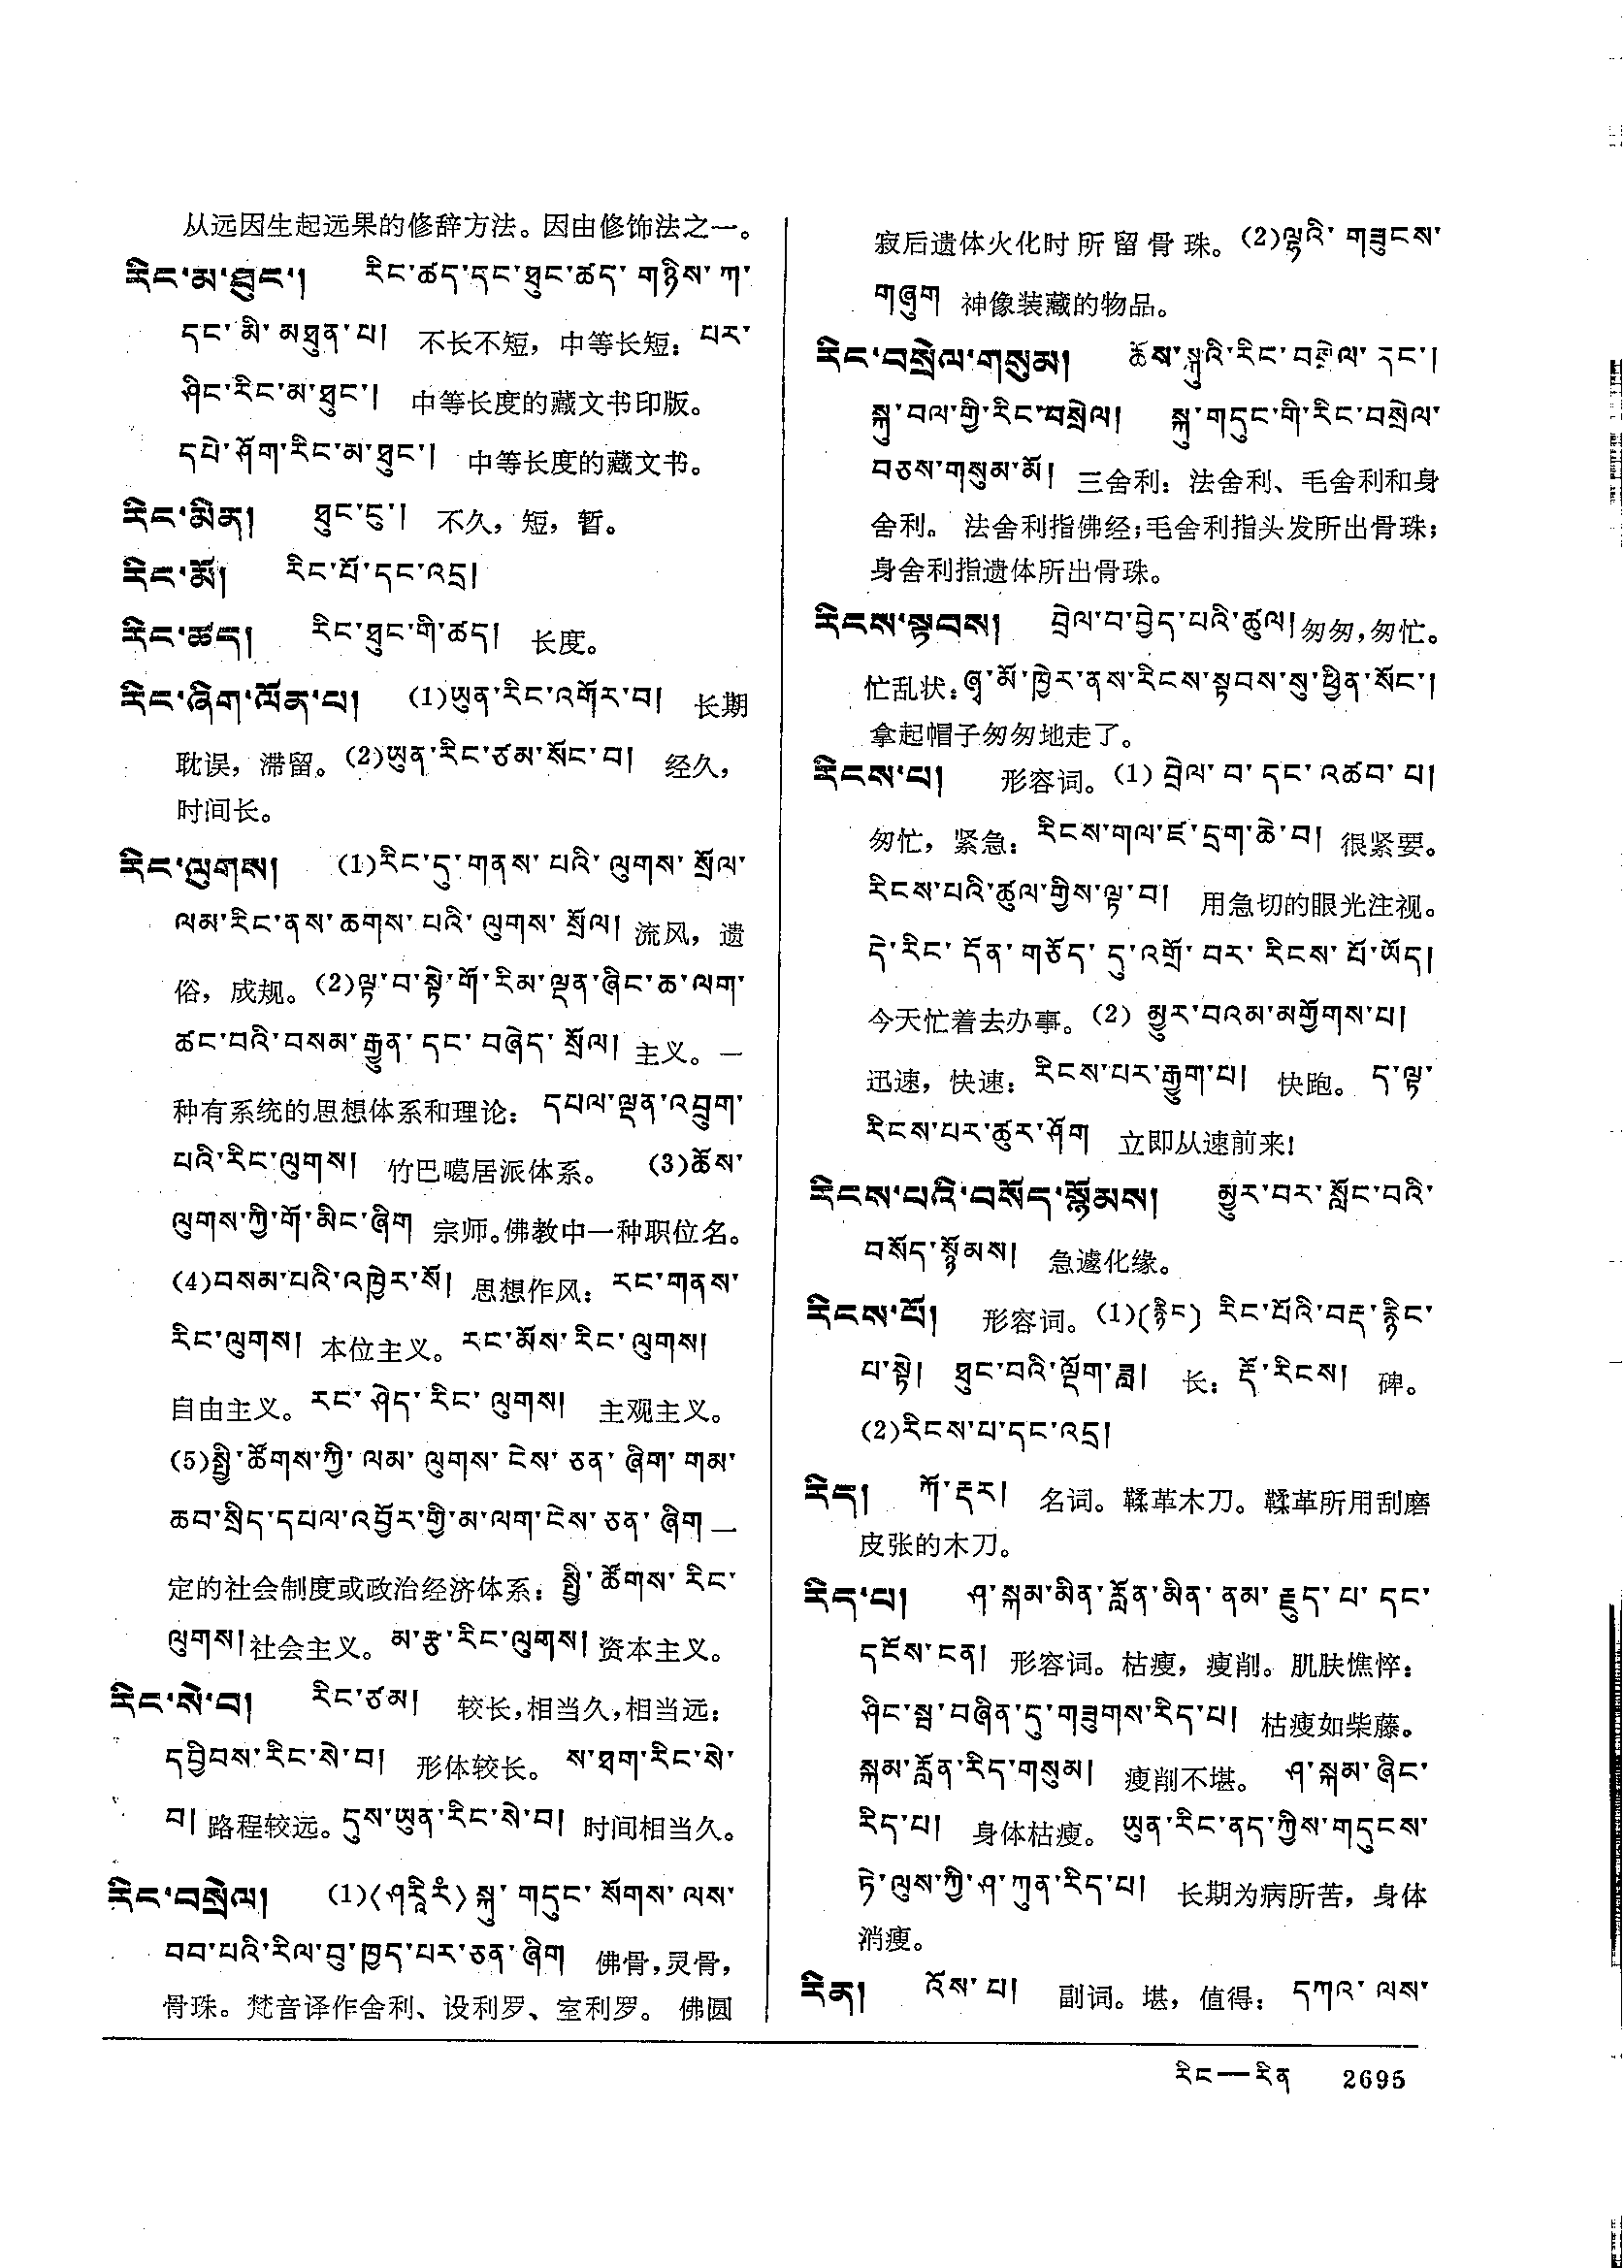 从远因生起远果的修辞方法。因由修饰法之一。
རིང་མ་ཐུང་། རིང་ཚད་དང་ཐུང་ཚད་གཉིས་ཀ་
དང་མི་མཐུན་པ། 不长不短，中等长短：པར་
ཤིང་རིང་མ་ཐུང་། 中等长度的藏文书印版。
དཔེ་ཤོག་རིང་མ་ཐུང་། 中等长度的藏文书。
རིང་མིན། ཐུང་ངུ་། 不久，短，暂。
རིང་མོ། རིང་པོ་དང་འདྲ།
རིང་ཚད། རིང་ཐུང་གི་ཚད། 长度。
རིང་ཞིག་ལོན་པ། (1)ཡུན་རིང་འགོར་བ། 长期
耽误，滞留。(2)ཡུན་རིང་ཙམ་སོང་བ། 经久，
时间长。
རིང་ལུགས། (1)རིང་དུ་གནས་པའི་ལུགས་སྲོལ་
ལམ་རིང་ནས་ཆགས་པའི་ལུགས་སྲོལ། 流风，遗
俗，成规。(2)ལྟ་བ་སྟེ་གོ་རིམ་ལྡན་ཞིང་ཆ་ལག་
ཚང་བའི་བསམ་རྒྱུན་དང་བཞེད་སྲོལ། 主义。一
种有系统的思想体系和理论：དཔལ་ལྡན་འབྲུག་
པའི་རིང་ལུགས། 竹巴噶居派体系。 (3)ཆོས་
ལུགས་ཀྱི་གོ་མིང་ཞིག 宗师。佛教中一种职位名。
(4)བསམ་པའི་འཁྱེར་སོ། 思想作风：རང་གནས་
རིང་ལུགས། 本位主义。རང་མོས་རིང་ལུགས།
自由主义。རང་ཤེད་རིང་ལུགས། 主观主义。
(5)སྤྱི་ཚོགས་ཀྱི་ལམ་ལུགས་ངེས་ཅན་ཞིག་གམ་
ཆབ་སྲིད་དཔལ་འབྱོར་གྱི་མ་ལག་ངེས་ཅན་ཞིག 一
定的社会制度或政治经济体系：སྤྱི་ཚོགས་རིང་
ལུགས། 社会主义。མ་རྩ་རིང་ལུགས། 资本主义。
རིང་སེ་བ། རིང་ཙམ། 较长，相当久，相当远：
དབྱིབས་རིང་སེ་བ། 形体较长。ས་ཐག་རིང་སེ་
བ། 路程较远。དུས་ཡུན་རིང་སེ་བ། 时间相当久。
རིང་བསྲེལ། (1) སྐུ་གདུང་སོགས་ལས་
བབ་པའི་རིལ་བུ་ཁྱད་པར་ཅན་ཞིག 佛骨，灵骨，
骨珠。梵音译作舍利、设利罗、室利罗。 佛圆
寂后遗体火化时所留骨珠。(2)ལྷའི་གཟུངས་
གཞུག 神像装藏的物品。
རིང་བསྲེལ་གསུམ། ཆོས་སྐུའི་རིང་བསྲེལ་དང་།
སྐུ་བལ་གྱི་རིང་བསྲེལ། སྐུ་གདུང་གི་རིང་བསྲེལ་
བཅས་གསུམ་མོ། 三舍利：法舍利、毛舍利和身
舍利。 法舍利指佛经；毛舍利指头发所出骨珠；
身舍利指遗体所出骨珠。
རིངས་སྟབས། བྲེལ་བ་བྱེད་པའི་ཚུལ། 匆匆，匆忙。
忙乱状：ཞྭ་མོ་ཁྱེར་ནས་རིངས་སྟབས་སུ་ཕྱིན་སོང་།
拿起帽子匆匆地走了。
རིངས་པ། 形容词。(1) བྲེལ་བ་དང་འཚབ་པ།
匆忙，紧急：རིངས་གལ་ཛ་དྲག་ཆེ་བ། 很紧要。
རིངས་པའི་ཚུལ་གྱིས་ལྟ་བ། 用急切的眼光注视。
དེ་རིང་དོན་གཅོད་དུ་འགྲོ་བར་རིངས་པོ་ཡོད།
今天忙着去办事。(2) མྱུར་བའམ་མགྱོགས་པ།
迅速，快速：རིངས་པར་རྒྱུག་པ། 快跑。ད་ལྟ་
རིངས་པར་ཚུར་ཤོག 立即从速前来！
རིངས་པའི་བསོད་སྙོམས། མྱུར་བར་སློང་བའི་
བསོད་སྙོམས། 急遽化缘。
རིངས་པོ། 形容词。(1)(རྙིང) རིང་པོའི་བརྡ་རྙིང་
པ་སྟེ། ཐུང་བའི་ལྡོག་ཟླ། 长：རྡོ་རིངས། 碑。
(2)རིངས་པ་དང་འདྲ།
རིད། ཀོ་རྡར། 名词。鞣革木刀。鞣革所用刮磨
皮张的木刀。
རིད་པ། ཤ་སྐམ་མིན་རློན་མིན་ནམ་རྫུད་པ་དང་
དངོས་ངན། 形容词。枯瘦，瘦削。肌肤憔悴：
ཤིང་སྦ་བཞིན་དུ་གཟུགས་རིད་པ། 枯瘦如柴藤。
སྐམ་རློན་རིད་གསུམ། 瘦削不堪。 ཤ་སྐམ་ཞིང་
རིད་པ། 身体枯瘦。 ཡུན་རིང་ནད་ཀྱིས་གདུངས་
ཏེ་ལུས་ཀྱི་ཤ་ཀུན་རིད་པ། 长期为病所苦，身体
消瘦。
རིན། འོས་པ། 副词。堪，值得：དཀའ་ལས་
རིང—རིན 2695